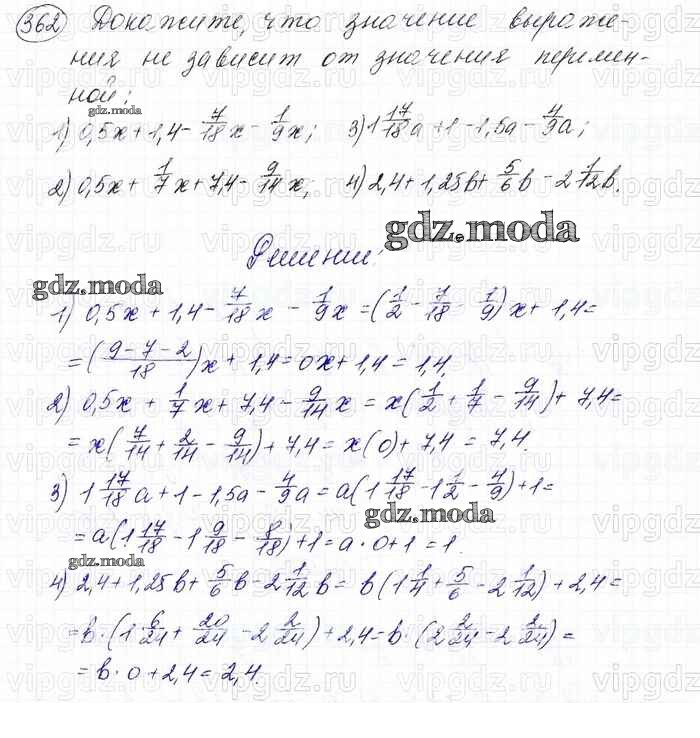 362 Докажите, что значение выраже-
ния не зависит от значения перемен-
ной:
1) 0,5x + 1,4 - 7/18 x - 1/9 x; 3) 1 17/18 a + 1 - 1,5a - 4/9 a;
2) 0,5x + 1/7 x + 7,4 - 9/14 x; 4) 2,4 + 1,25b + 5/6 b - 2 1/12 b.
gdz.moda
Решение:
gdz.moda
1) 0,5x + 1,4 - 7/18 x - 1/9 x = (1/2 - 7/18 - 1/9)x + 1,4 =
= ((9 - 7 - 2)/18)x + 1,4 = 0x + 1,4 = 1,4.
2) 0,5x + 1/7 x + 7,4 - 9/14 x = x(1/2 + 1/7 - 9/14) + 7,4 =
= x(7/14 + 2/14 - 9/14) + 7,4 = x(0) + 7,4 = 7,4.
3) 1 17/18 a + 1 - 1,5a - 4/9 a = a(1 17/18 - 1 1/2 - 4/9) + 1 =
gdz.moda
= a(1 17/18 - 1 9/18 - 8/18) + 1 = a · 0 + 1 = 1.
gdz.moda
4) 2,4 + 1,25b + 5/6 b - 2 1/12 b = b(1 1/4 + 5/6 - 2 1/12) + 2,4 =
= b · (1 6/24 + 20/24 - 2 2/24) + 2,4 = b · (2 2/24 - 2 2/24) =
= b · 0 + 2,4 = 2,4.